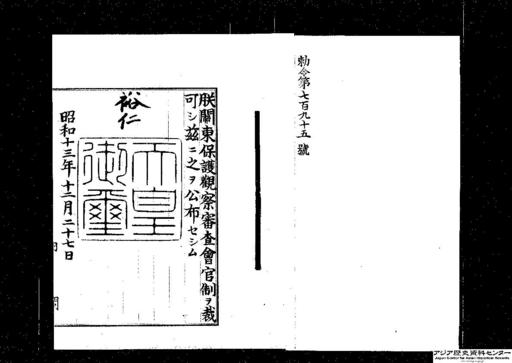 勅令第七百九十五號
朕關東保護觀察審查會官制ヲ裁
可シ茲ニ之ヲ公布セシム
裕仁
天皇
御璽
昭和十三年十二月二十七日
アジア歴史資料センター
Japan Center for Asian Historical Records